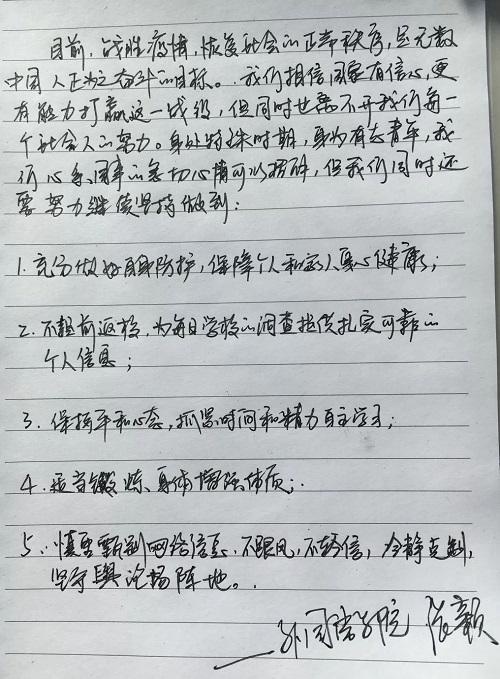 目前，战胜疫情，恢复社会的正常秩序，是无数
中国人正为之奋斗的目标。我们相信国家有信心，更
有能力打赢这一战役，但同时也离不开我们每一
个社会人的努力。身处特殊时期，身为有志青年，我
们心系国事的急切心情可以理解，但我们同时还
需努力继续坚持做到：
1. 充分做好自我防护，保障个人和家人身心健康；
2. 不提前返校，为每日学校的调查提供扎实可靠的
个人信息；
3. 保持平和心态，抓紧时间和精力自主学习；
4. 适当锻炼、身体增强体质；
5. 慎重甄别网络信息、不跟风，不轻信，冷静克制，
坚守舆论场阵地。
——外国语学院